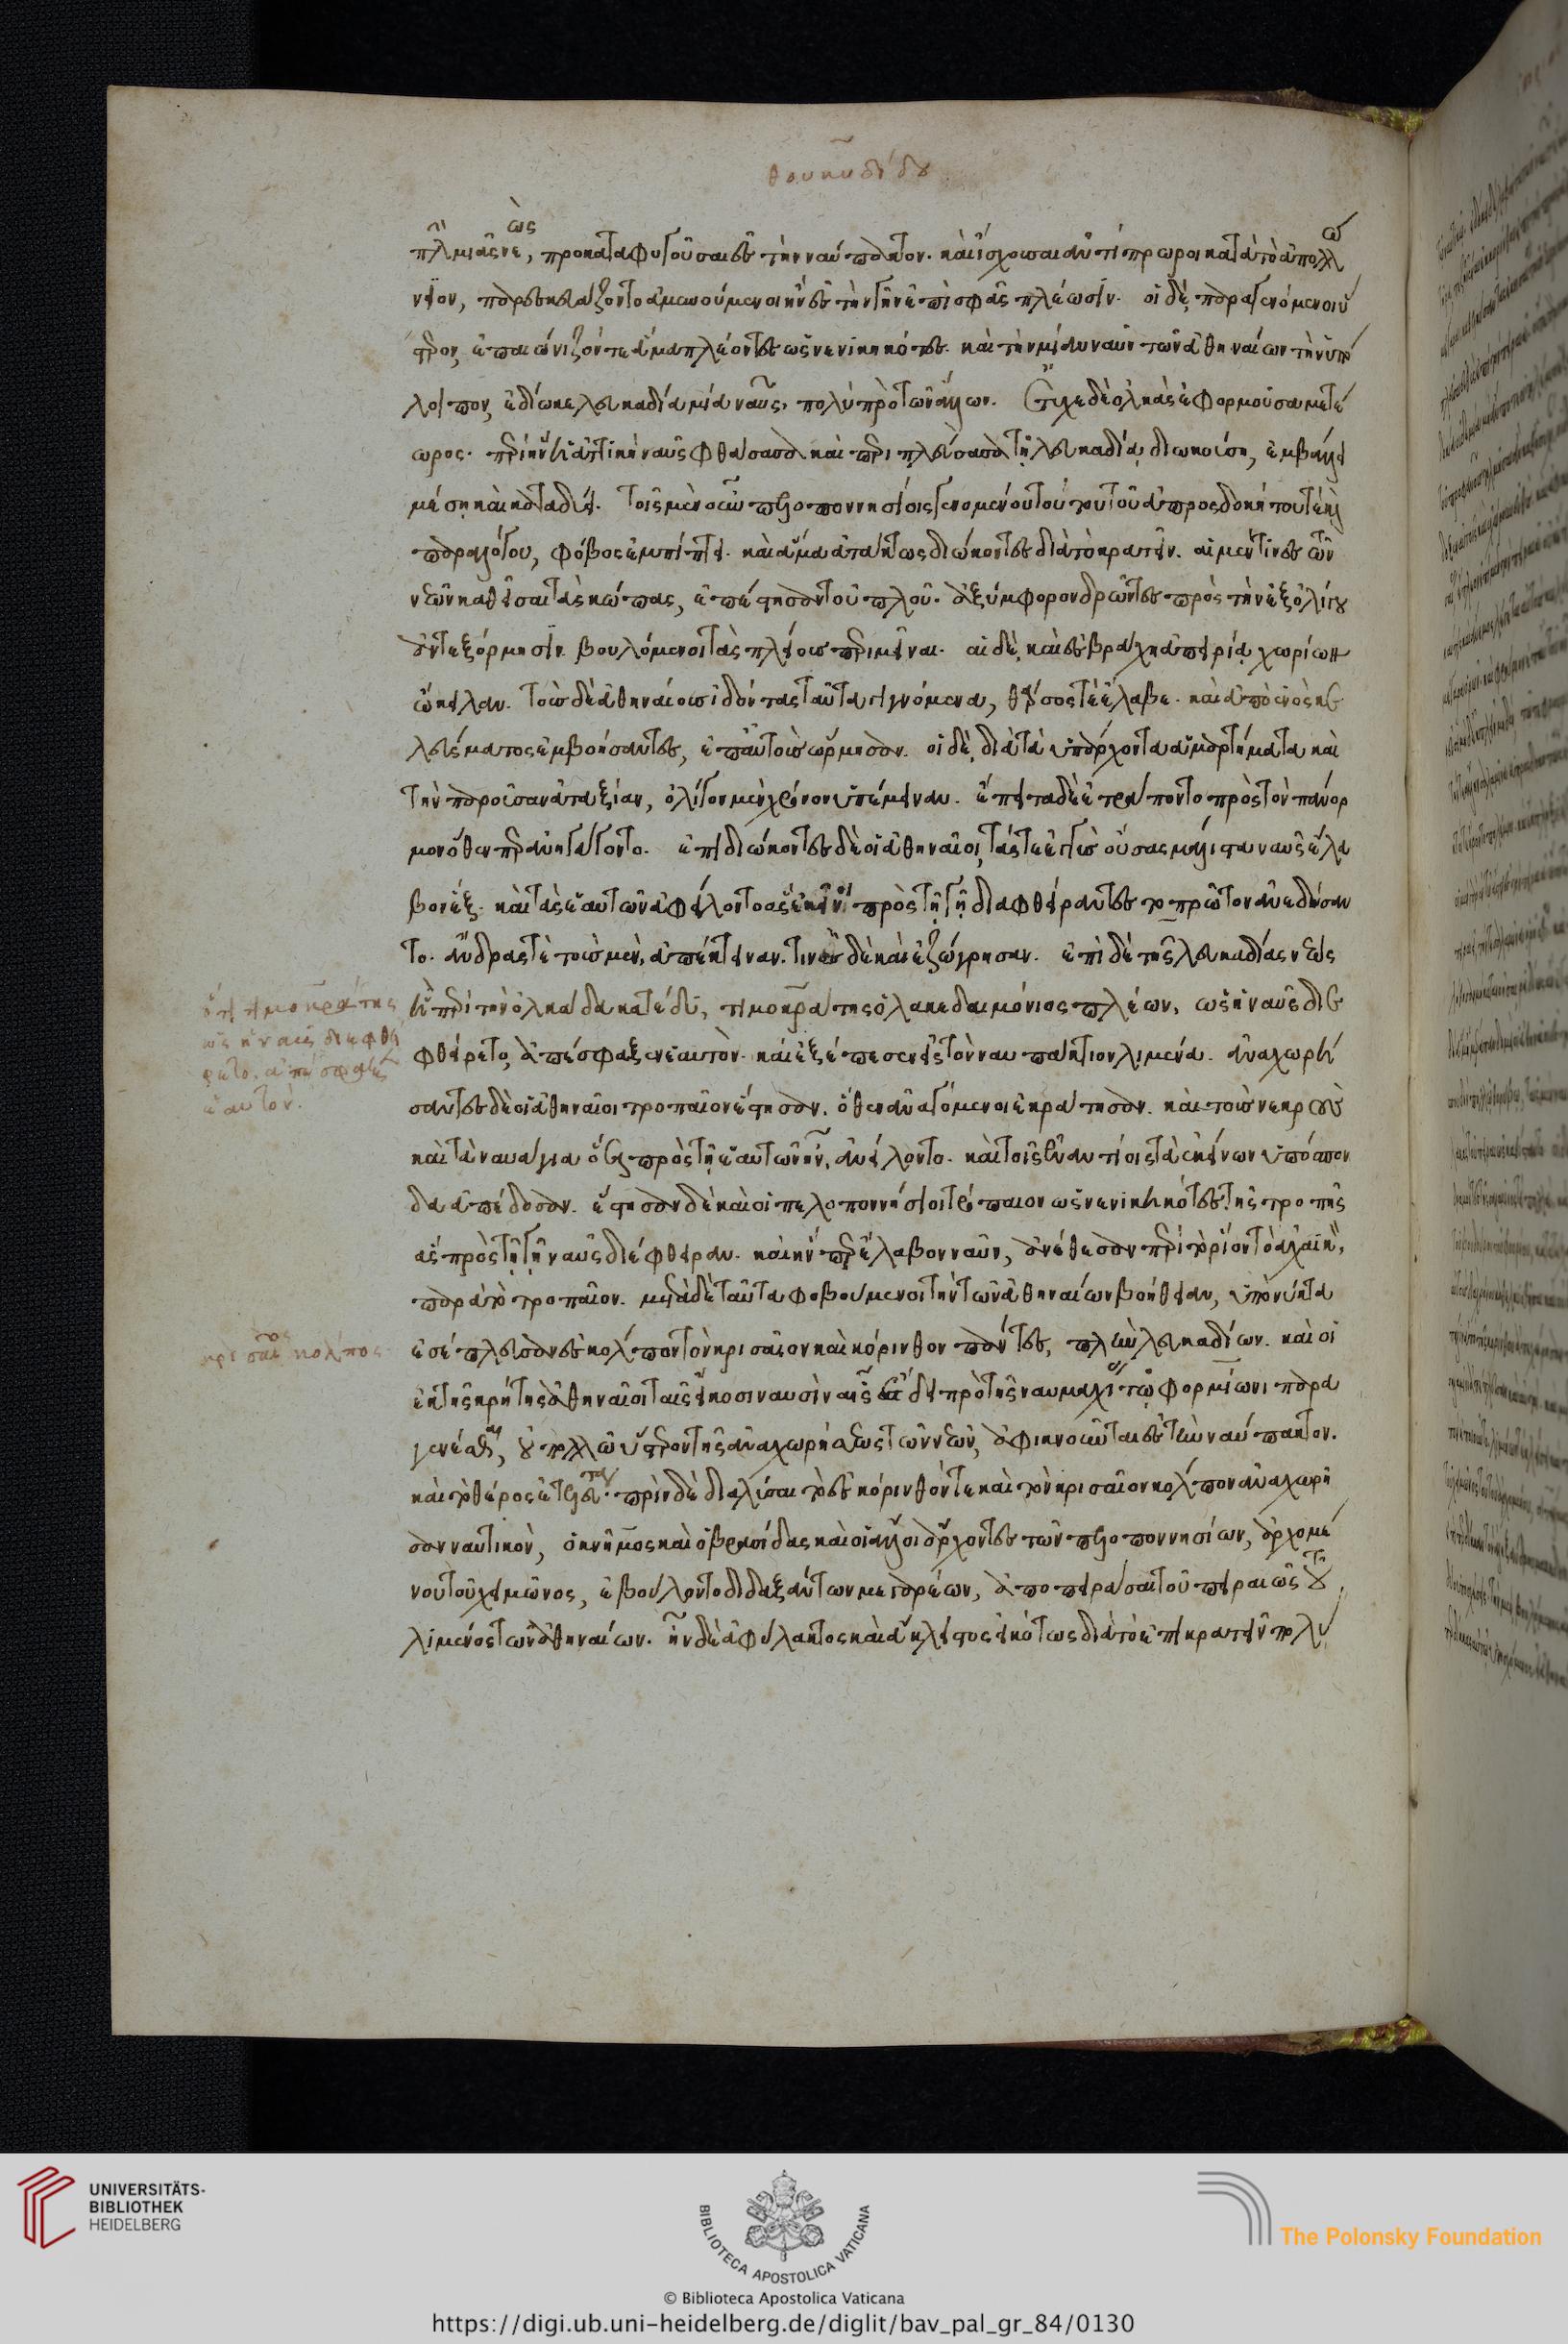 θουκυδίδου
πλὴν μιᾶς νεὼς, προκαταφυγοῦσαι ἐς τὴν ναύπακτον. καὶ ἴσχουσαι ἀντίπρωροι κατὰ τὸ ἀπολλω
νιον, παρεσκευάζοντο ἀμυνούμενοι ἢν ἐς τὴν γῆν ἐπὶ σφᾶς πλέωσιν. οἱ δὲ, παραγενόμενοι ὕ
στερον, ἐπαιώνιζόν τε ἅμα πλέοντες ὡς νενικηκότες. καὶ τὴν μίαν ναῦν τῶν ἀθηναίων τὴν ὑπό
λοιπον, ἐδίωκε λευκαδία μία ναῦς, πολὺ πρὸ τῶν ἄλλων. ἔτυχε δὲ ὁλκὰς ἐφορμοῦσα μετέ
ωρος. περὶ ἣν ἡ ἀττικὴ ναῦς φθάσασα καὶ περιπλεύσασα τῇ λευκαδίᾳ διωκούσῃ, ἐμβάλλει
μέσῃ καὶ καταδύει. τοῖς μὲν οὖν πελοποννησίοις γενομένου τούτου τοῦ ἀπροσδοκήτου τὲ καὶ
παραλόγου, φόβος ἐμπίπτει. καὶ ἅμα ἀτάκτως διώκοντες διὰ τὸ κρατεῖν. αἱ μέν τινες τῶν
νεῶν καθεῖσαι τὰς κώπας, ἐπέστησαν τοῦ πλοῦ. ἀξύμφορον δρῶντες πρὸς τὴν ἐξ ὀλίγου
ἀντεξόρμησιν βουλόμενοι τὰς πλείους περιμεῖναι. αἱ δὲ, καὶ ἐς βράχη ἀπειρίᾳ χωρίων
ὤκειλαν. τοὺς δὲ ἀθηναίους ἰδόντας ταῦτα γιγνόμενα, θάρσος τὲ ἔλαβε. καὶ ἀπὸ ἑνὸς κε
λεύσματος ἐμβοήσαντες, ἐπ' αὐτοὺς ὥρμησαν. οἱ δὲ, διὰ τὰ ὑπάρχοντα ἁμαρτήματα καὶ
τὴν παροῦσαν ἀταξίαν, ὀλίγον μὲν χρόνον ὑπέμειναν. ἔπειτα δὲ ἐτράποντο πρὸς τὸν πάνορ
μον ὅθεν περ ἀνηγάγοντο. ἐπιδιώκοντες δὲ οἱ ἀθηναῖοι, τάς τε ἐγγὺς οὔσας μάλιστα ναῦς ἔλα
βον ἕξ. καὶ τὰς ἑαυτῶν ἀφείλοντο ἃς ἐκεῖνοι πρὸς τῇ γῇ διαφθείραντες τὸ πρῶτον ἀνεδήσαν
το. ἄνδρας τὲ τοὺς μὲν, ἀπέκτειναν. τινὰς δὲ καὶ ἐζώγρησαν. ἐπὶ δὲ τῆς λευκαδίας νεὼς
ἣ περὶ τὴν ὁλκάδα κατέδυ, τιμοκράτης ὁ λακεδαιμόνιος πλέων, ὡς ἡ ναῦς διε
φθείρετο, ἀπέσφαξεν ἑαυτὸν. καὶ ἐξέπεσεν εἰς τὸν ναυπάκτιον λιμένα. ἀναχωρή
σαντες δὲ οἱ ἀθηναῖοι τροπαῖον ἔστησαν. ὅθεν ἀναγόμενοι ἐκράτησαν. καὶ τοὺς νεκροὺς
καὶ τὰ ναυάγια ὅσα πρὸς τῇ ἑαυτῶν ἦν, ἀνείλοντο. καὶ τοῖς ἐναντίοις τὰ ἐκείνων ὑπόσπον
δα ἀπέδοσαν. ἔστησαν δὲ καὶ οἱ πελοποννήσιοι τρόπαιον ὡς νενικηκότες τῆς τροπῆς
ἃς πρὸς τῇ γῇ ναῦς διέφθειραν. καὶ ἥνπερ ἔλαβον ναῦν, ἀνέθεσαν περὶ τὸ ῥίον τὸ ἀχαϊκὸν,
παρὰ τὸ τροπαῖον. μετὰ δὲ ταῦτα φοβούμενοι τὴν τῶν ἀθηναίων βοήθειαν, ὑπὸ νύκτα
ἐσέπλευσαν ἐς κόλπον τὸν κρισαῖον καὶ κόρινθον πάντες, πλὴν λευκαδίων. καὶ οἱ
ἐκ τῆς κρήτης ἀθηναῖοι ταῖς εἴκοσι ναυσὶν αἷς ἔδει πρὸ τῆς ναυμαχίας τῷ φορμίωνι παρα
γενέσθαι, οὐ πολλῷ ὕστερον τῆς ἀναχωρήσεως τῶν νεῶν, ἀφικνοῦνται ἐς τὴν ναύπακτον.
καὶ τὸ θέρος ἐτελεύτα. πρὶν δὲ διαλῦσαι τὸ ἐς κόρινθόν τε καὶ τὸν κρισαῖον κόλπον ἀναχωρῆ
σαν ναυτικὸν, ὁ κνῆμος καὶ ὁ βρασίδας καὶ οἱ ἄλλοι ἄρχοντες τῶν πελοποννησίων, ἀρχομέ
νου τοῦ χειμῶνος, ἐβούλοντο διδαξάντων μεγαρέων, ἀποπειρᾶσαι τοῦ πειραιῶς τοῦ
λιμένος τῶν ἀθηναίων. ἦν δὲ ἀφύλακτος καὶ ἄκλειστος εἰκότως διὰ τὸ ἐπικρατεῖν πολὺ
ὅτι τιμοκράτης
ὡς ἡ ναῦς διεφθεί
ρετο, ἀπέσφαξεν
ἑαυτὸν.
κρισαῖος κόλπος
UNIVERSITÄTS-
BIBLIOTHEK
HEIDELBERG
BIBLIOTECA APOSTOLICA VATICANA
The Polonsky Foundation
© Biblioteca Apostolica Vaticana
https://digi.ub.uni-heidelberg.de/diglit/bav_pal_gr_84/0130